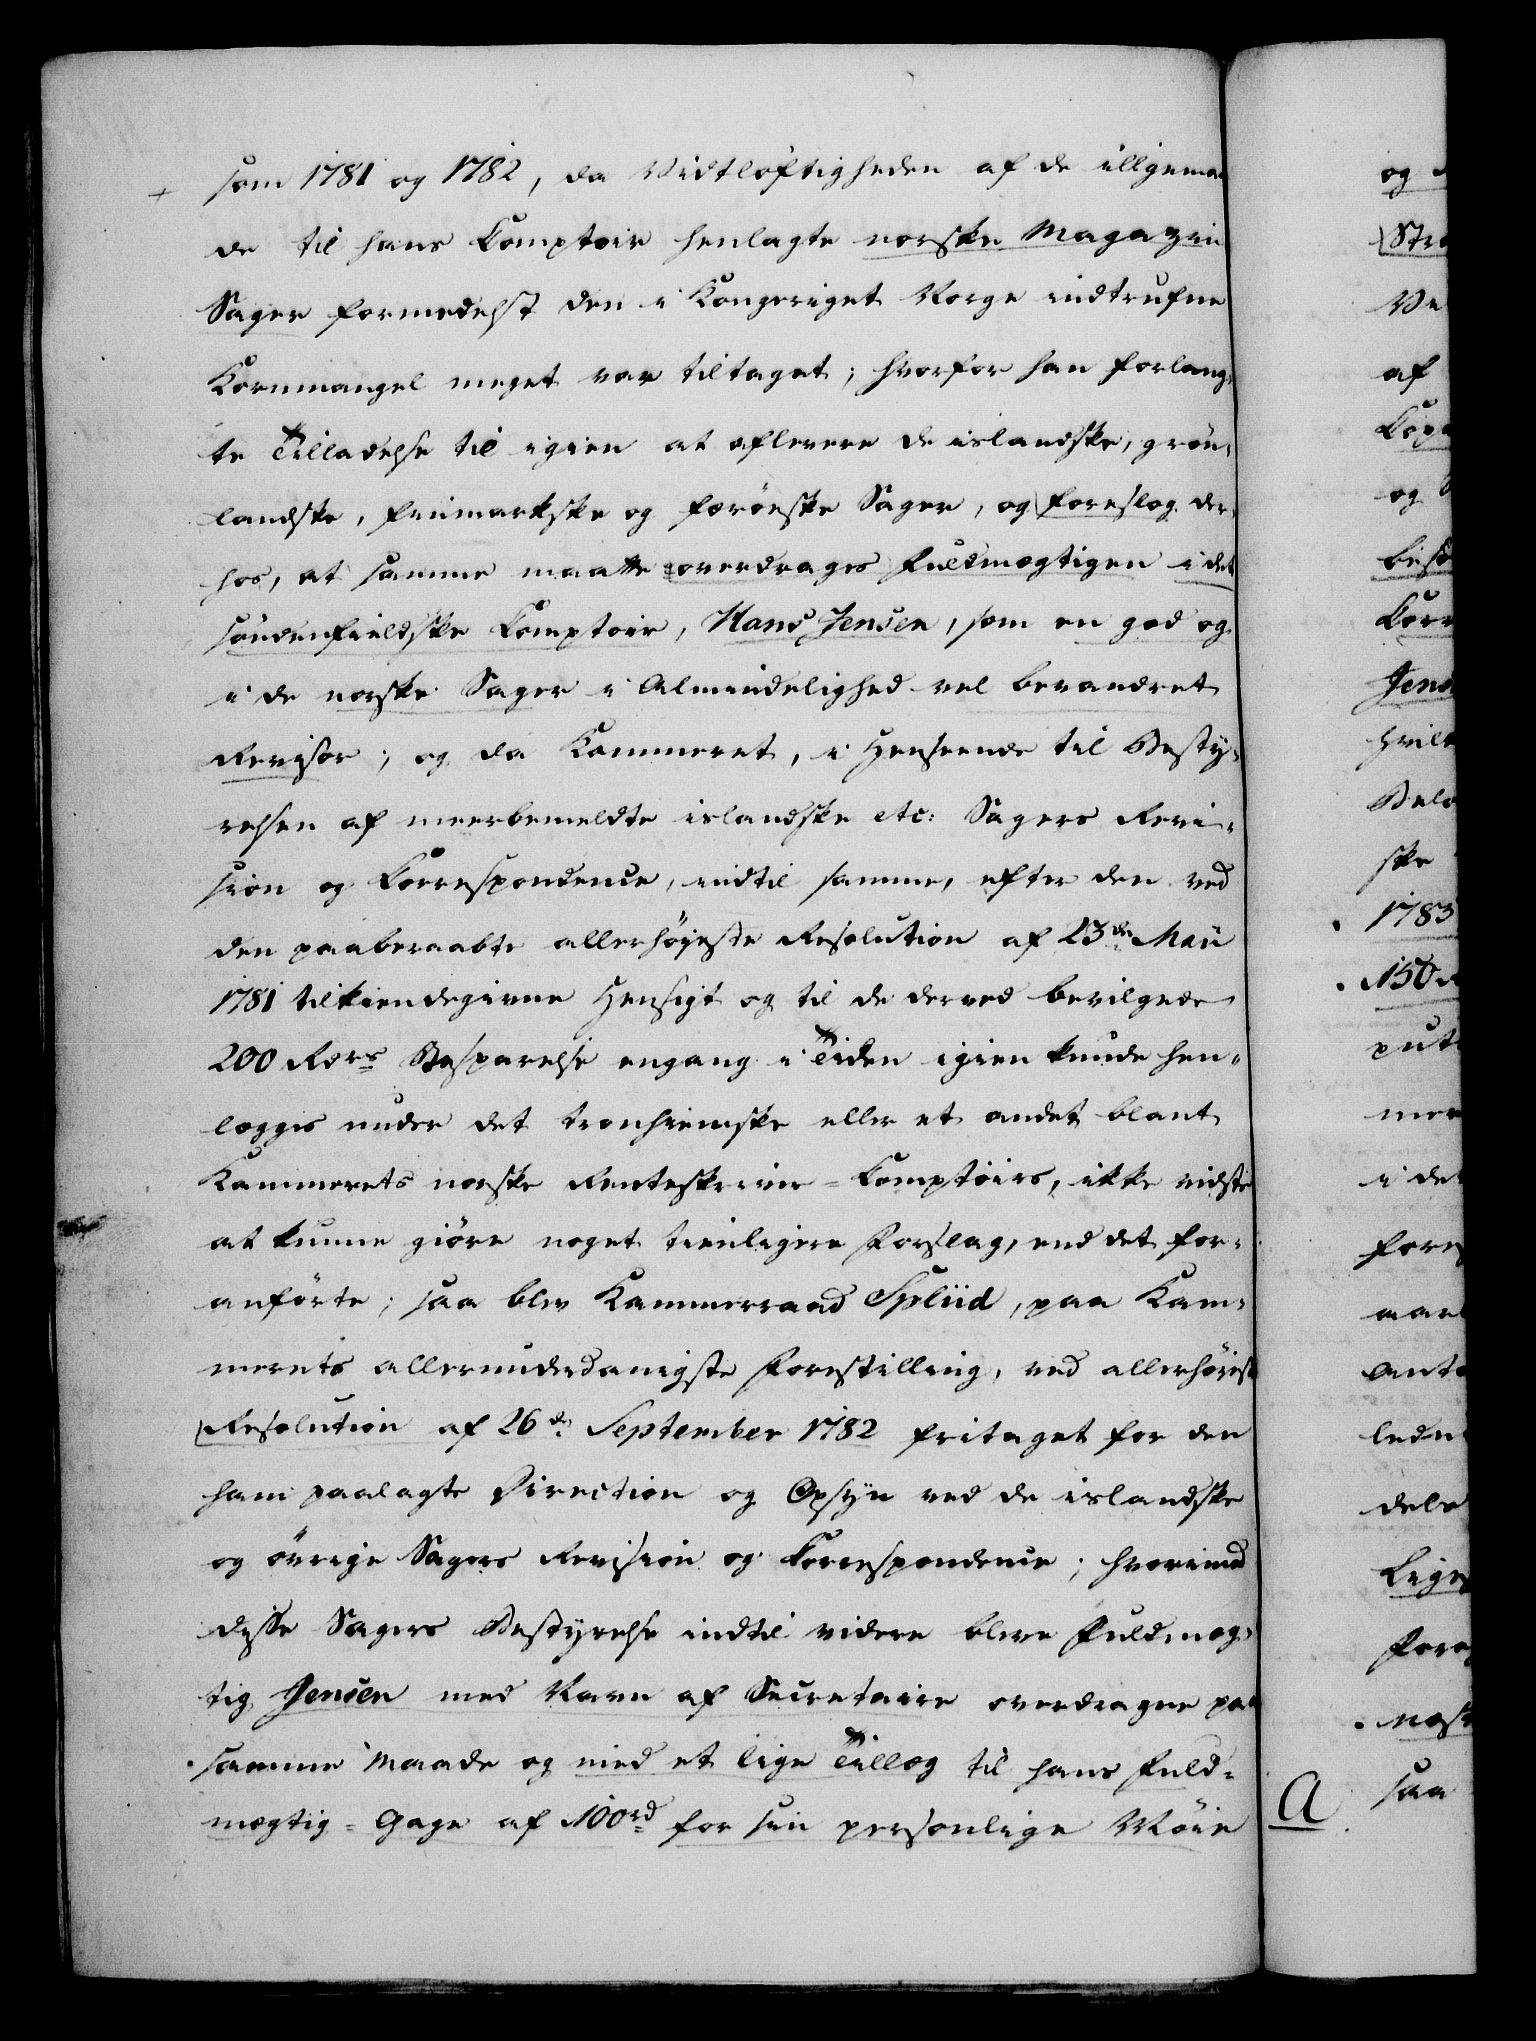 som 1781 og 1782, da Vidtløftigheden af de illigema
de til hans Comptoir henlagte norske Magazin
Sager formedelst den i Kongeriget Norge indtrufne
Kornmangel meget var tiltaget; hvorfor han forlang-
te Tilladelse til igien at aflevere de islandske, grøn-
landske, finmarkske og færøeske Sager, og foreslog der-
hos, at samme maatte overdrages Fuldmægtigen i det
søndenfieldske Comptoir, Hans Jensen, som en god og
i de norske Sager i Almindelighed vel bevandret
Revisor; og da Kammeret, i Henseende til Besty-
relsen af meerbemeldte islandske etc: Sagers Revi-
sion og Correspondence, indtil samme, efter den ved
den paaberaabte allerhøyeste Resolution af 23de Maii
1781 tilkiendegivne Hensigt og til de derved bevilgede
200 Rdrs Besparelse engang i Tiden igien kunde hen-
lægges under det tronhiemske eller et andet blant
Kammerets norske Renteskriver-Comptoirs, ikke vidste
at kunne giøre noget tienligere Forslag, end det for-
anførte; saa blev Kammerraad Spliid, paa Kam-
merets allerunderdanigste Forestilling, ved allerhøieste
Resolution af 26de September 1782 fritaget for den
ham paalagte Direction og Opsyn ved de islandske
og øvrige Sagers Revision og Correspondence; hvorimod
disse Sagers Bestyrelse indtil videre bleve Fuldmæg-
tig Jensen med Navn af Secretaire overdragne paa
samme Maade og med et lige Tillæg til hans Fuld-
mægtig-Gage af 100rd for sin personlige Møie
og
Stra
Ve
af
og
besø
Corr
Jens
hvilk
Belø
ske
1783
150
put
mer
i det
fores
aar
Anta
ledn
dels
Liges
næst
saa
A